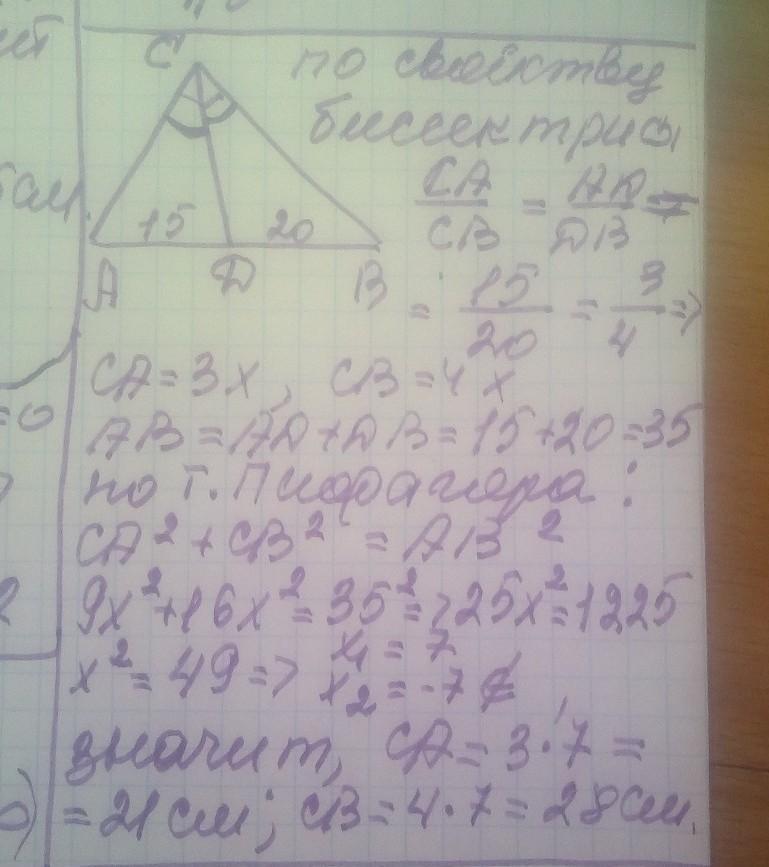 C по свойству
биссектрисы
CA/CB = AD/DB =
15 20
A D B
= 15/20 = 3/4 =>
CA = 3x, CB = 4x
AB = AD + DB = 15 + 20 = 35
по т. Пифагора:
CA² + CB² = AB²
9x² + 16x² = 35² => 25x² = 1225
x² = 49 => x₁ = 7
x₂ = -7 ∉
значит, CA = 3·7 =
= 21 см; CB = 4·7 = 28 см.